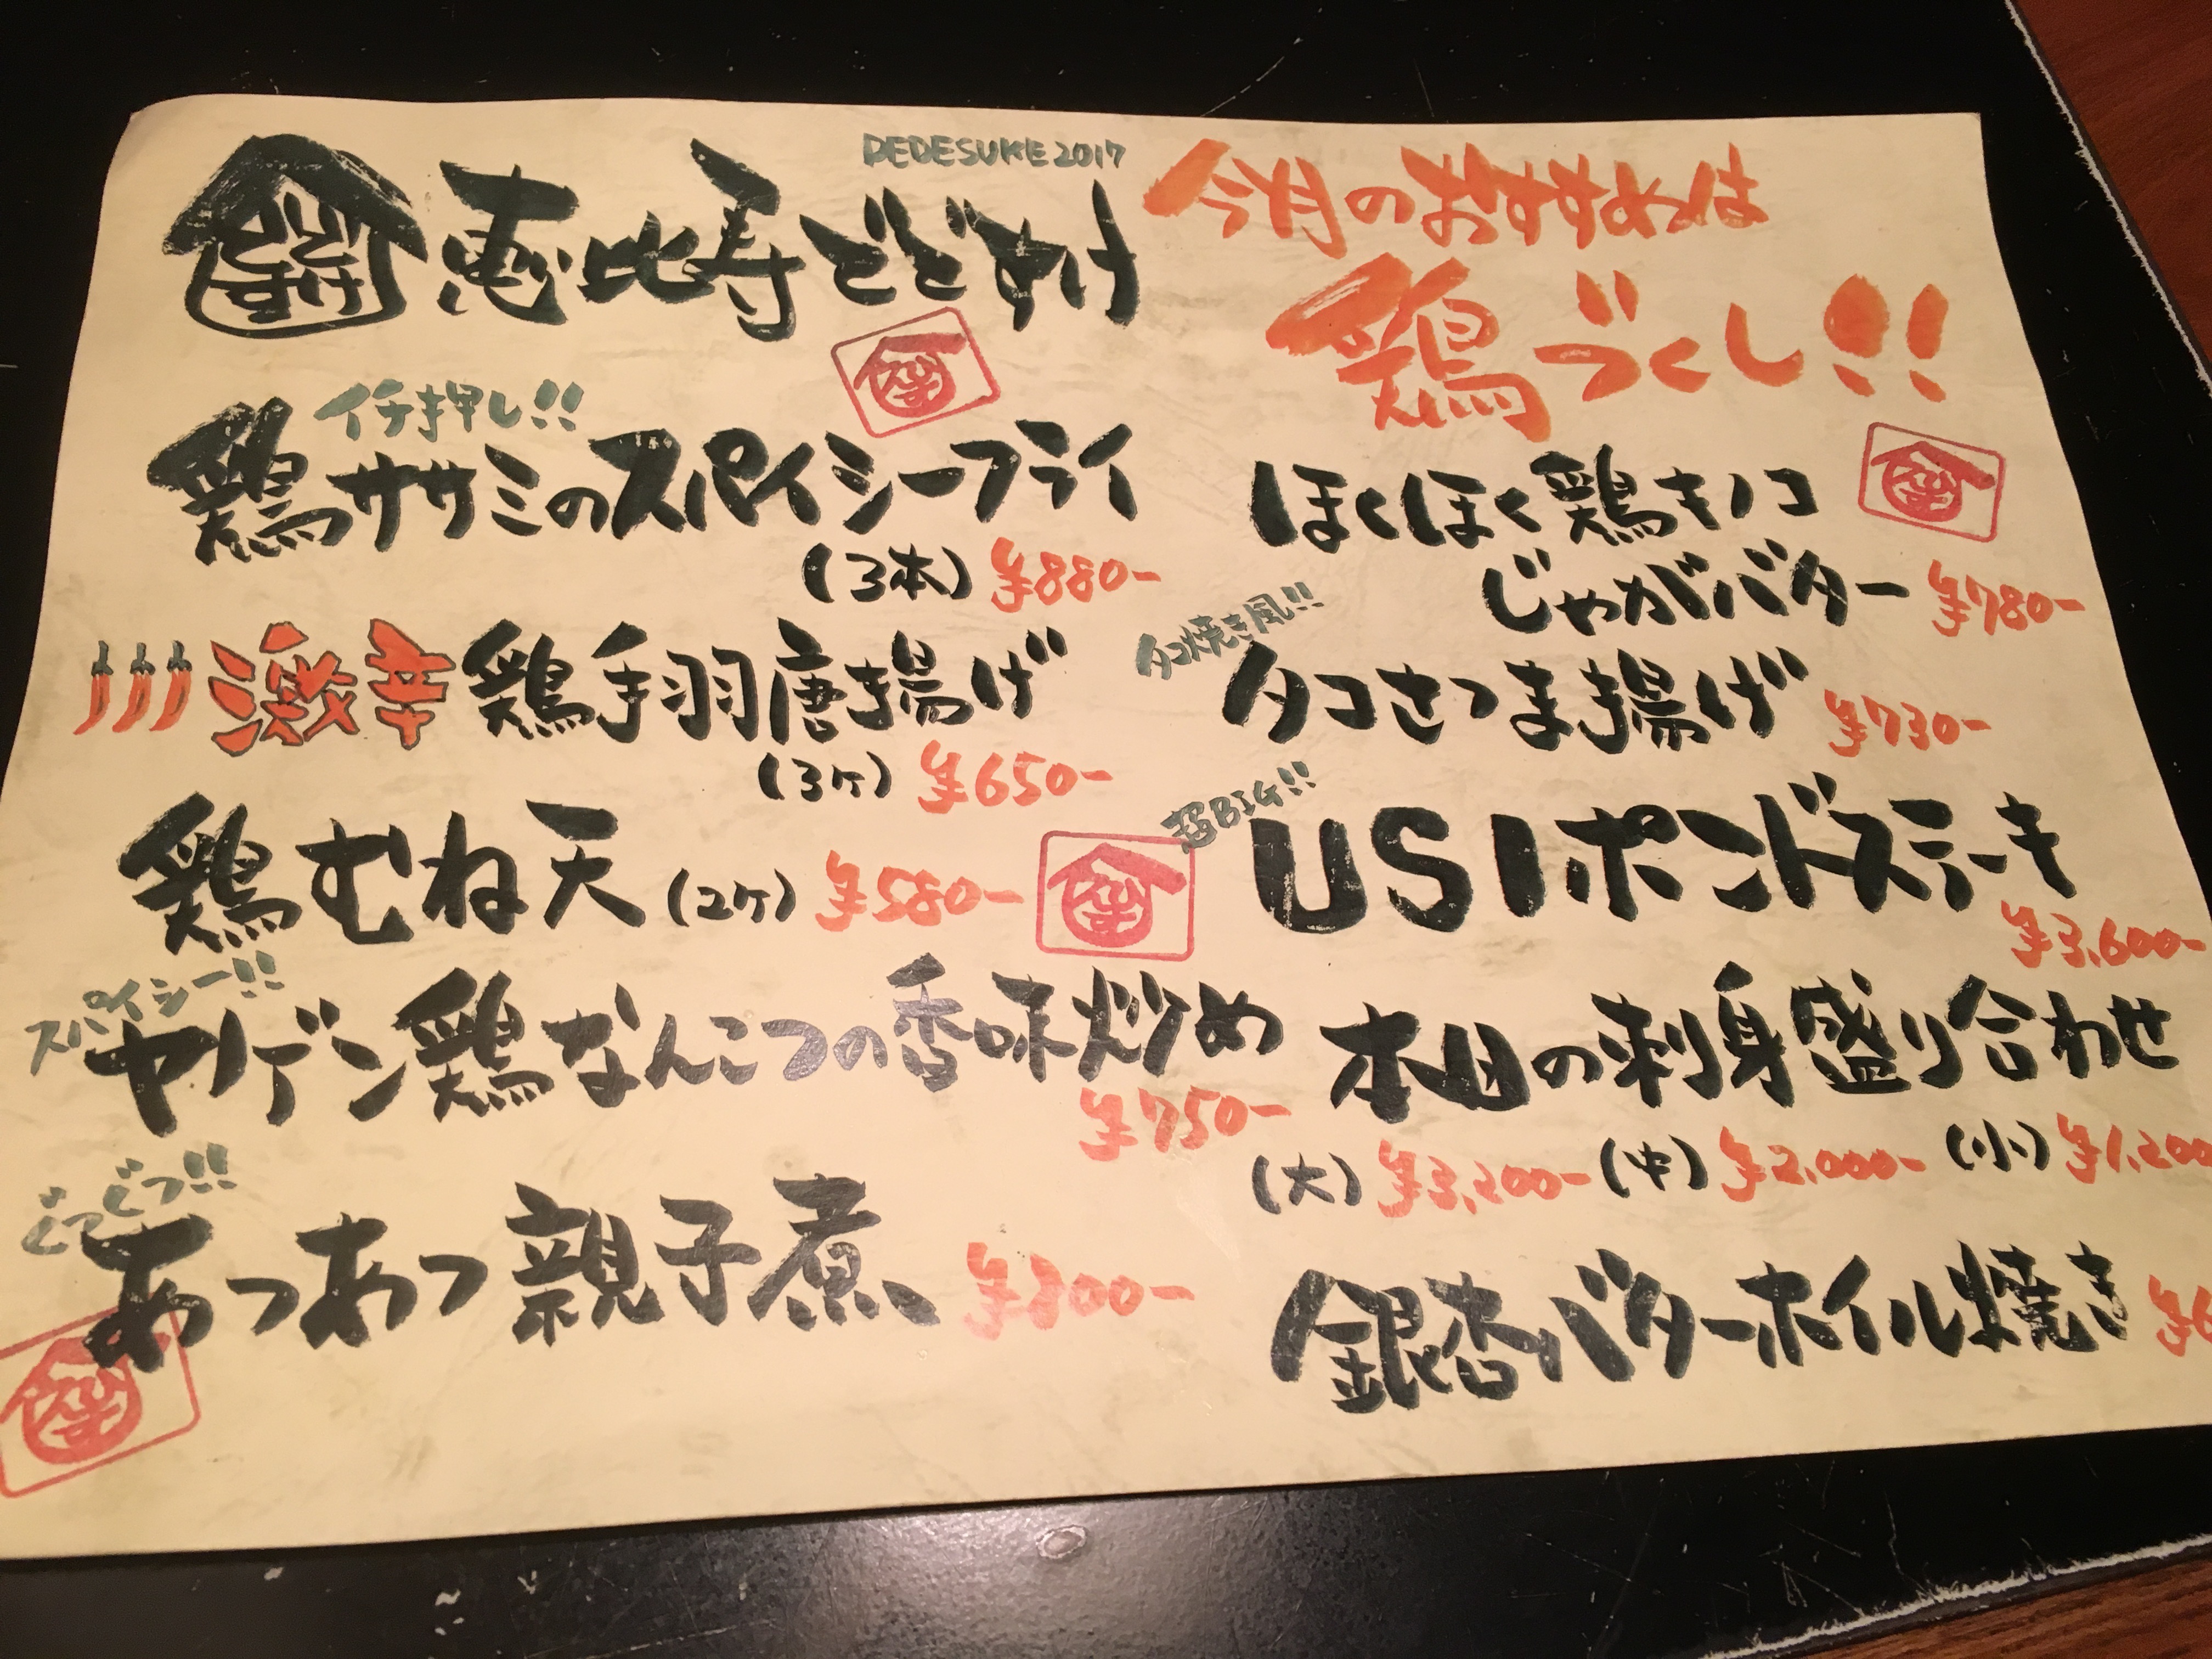 DEDESUKE2017
恵比寿でですけ
イチ押し!!
鶏ササミのスパイシーフライ
(3本) ¥880-
激辛 鶏手羽唐揚げ
(3ケ) ¥650-
鶏むね天 (2ケ) ¥580-
スパイシー!!
ヤゲン鶏なんこつの香味炒め
¥750-
ぐつぐつ!!
あつあつ親子煮 ¥800-
今月のおすすめは
鶏づくし!!
ほくほく鶏キノコ
じゃがバター ¥780-
タコ焼き風!!
タコさつま揚げ ¥730-
超BIG!!
US1ポンドステーキ
¥3,600-
本日の刺身盛り合わせ
(大) ¥3,200- (中) ¥2,000- (小) ¥1,200
銀杏バターホイル焼き